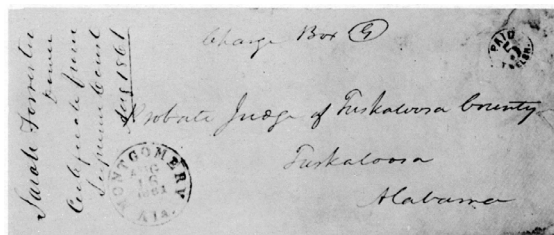 Charge Box 9
PAID
5
Probate Judge of Tuskaloosa County
Tuskaloosa
Alabama
MONTGOMERY
AUG
1861
Ala.
Sarah
Certificate from
Supreme Court
Aug 1861